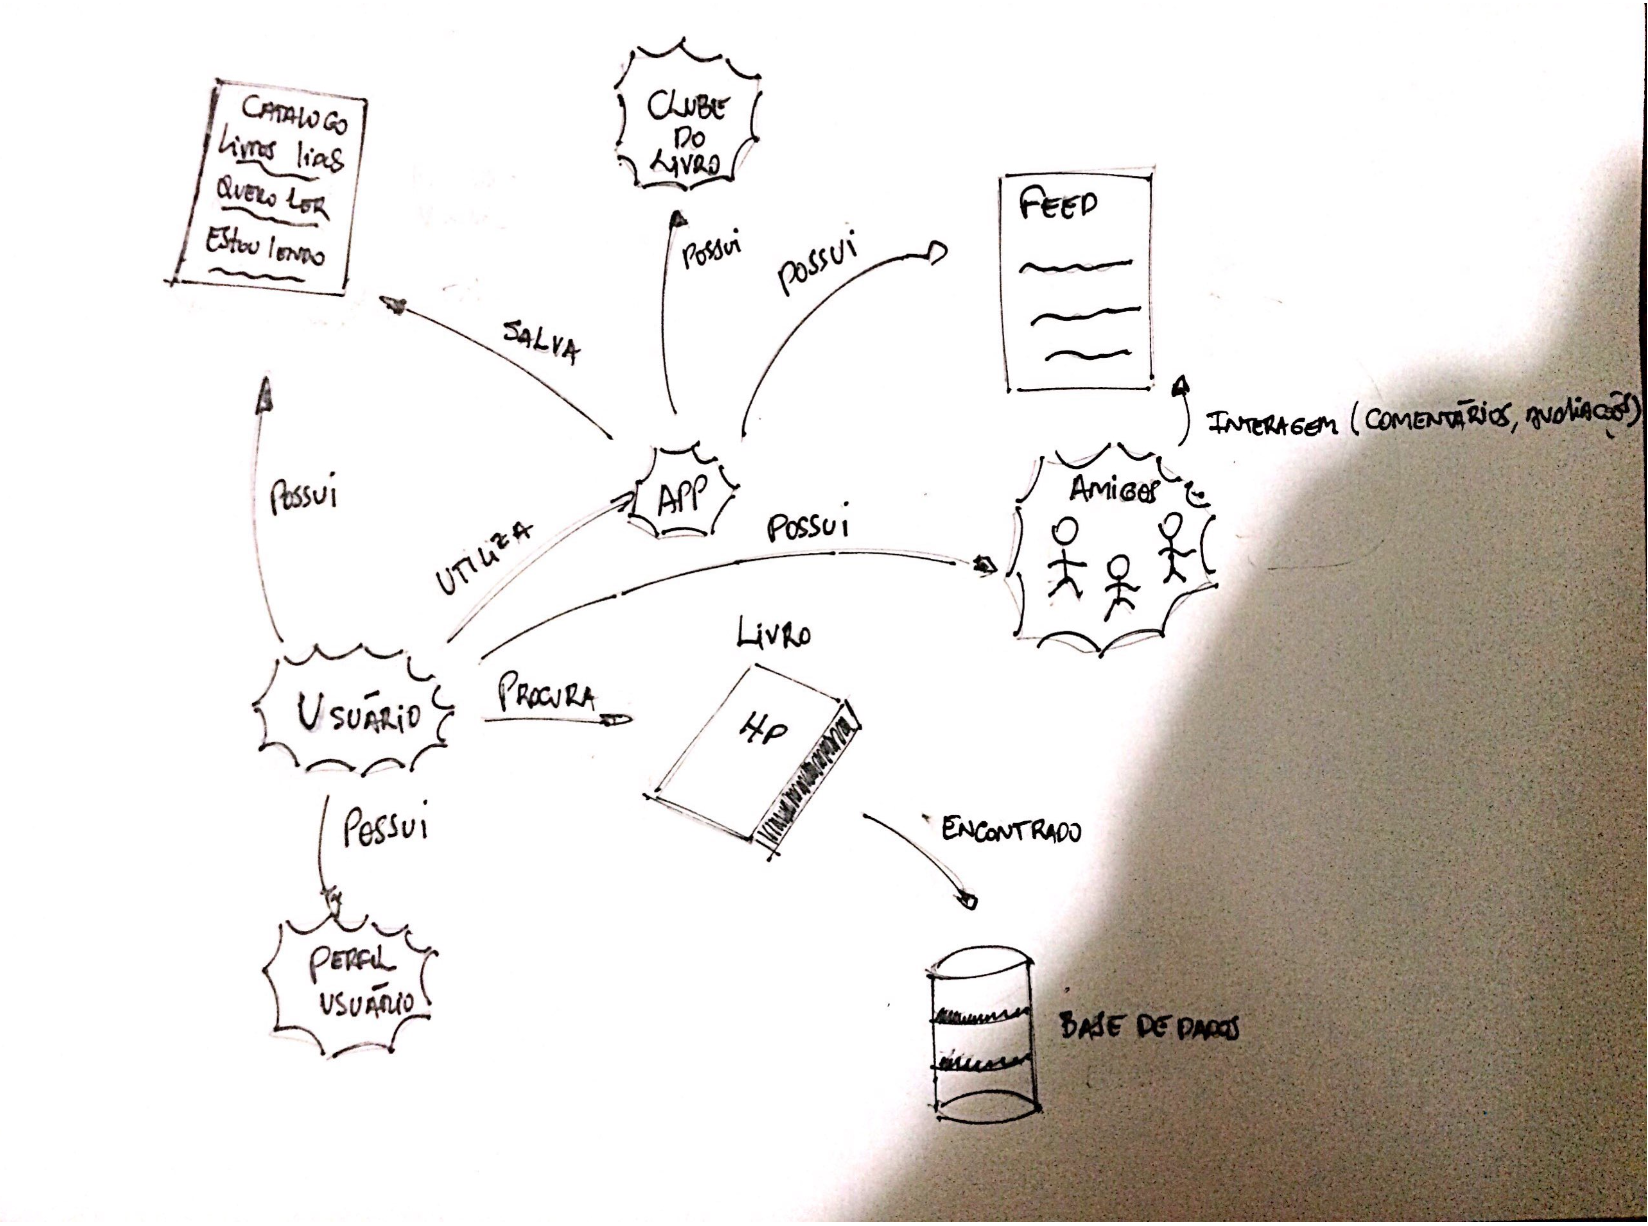 CATALOGO
Livros lidos
QUERO LER
Estou lendo
CLUBE
DO
LIVRO
FEED
POSSUI
POSSUI
SALVA
INTERAGEM (COMENTÁRIOS, AVALIAÇÕES)
POSSUI
APP
AMIGOS
UTILIZA
POSSUI
LIVRO
USUÁRIO
PROCURA
HP
POSSUI
ENCONTRADO
PERFIL
USUÁRIO
BASE DE DADOS